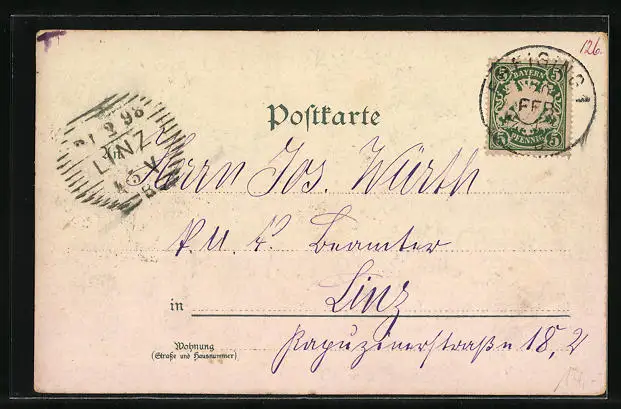 126.
5 5
BAYERN
PFENNIG
FEB
Postkarte
21 2 98
LINZ
Herrn Jos. Würth
Beamter
in Linz
Wohnung
(Straße und Hausnummer)
Kapuzinerstraße 18, 2